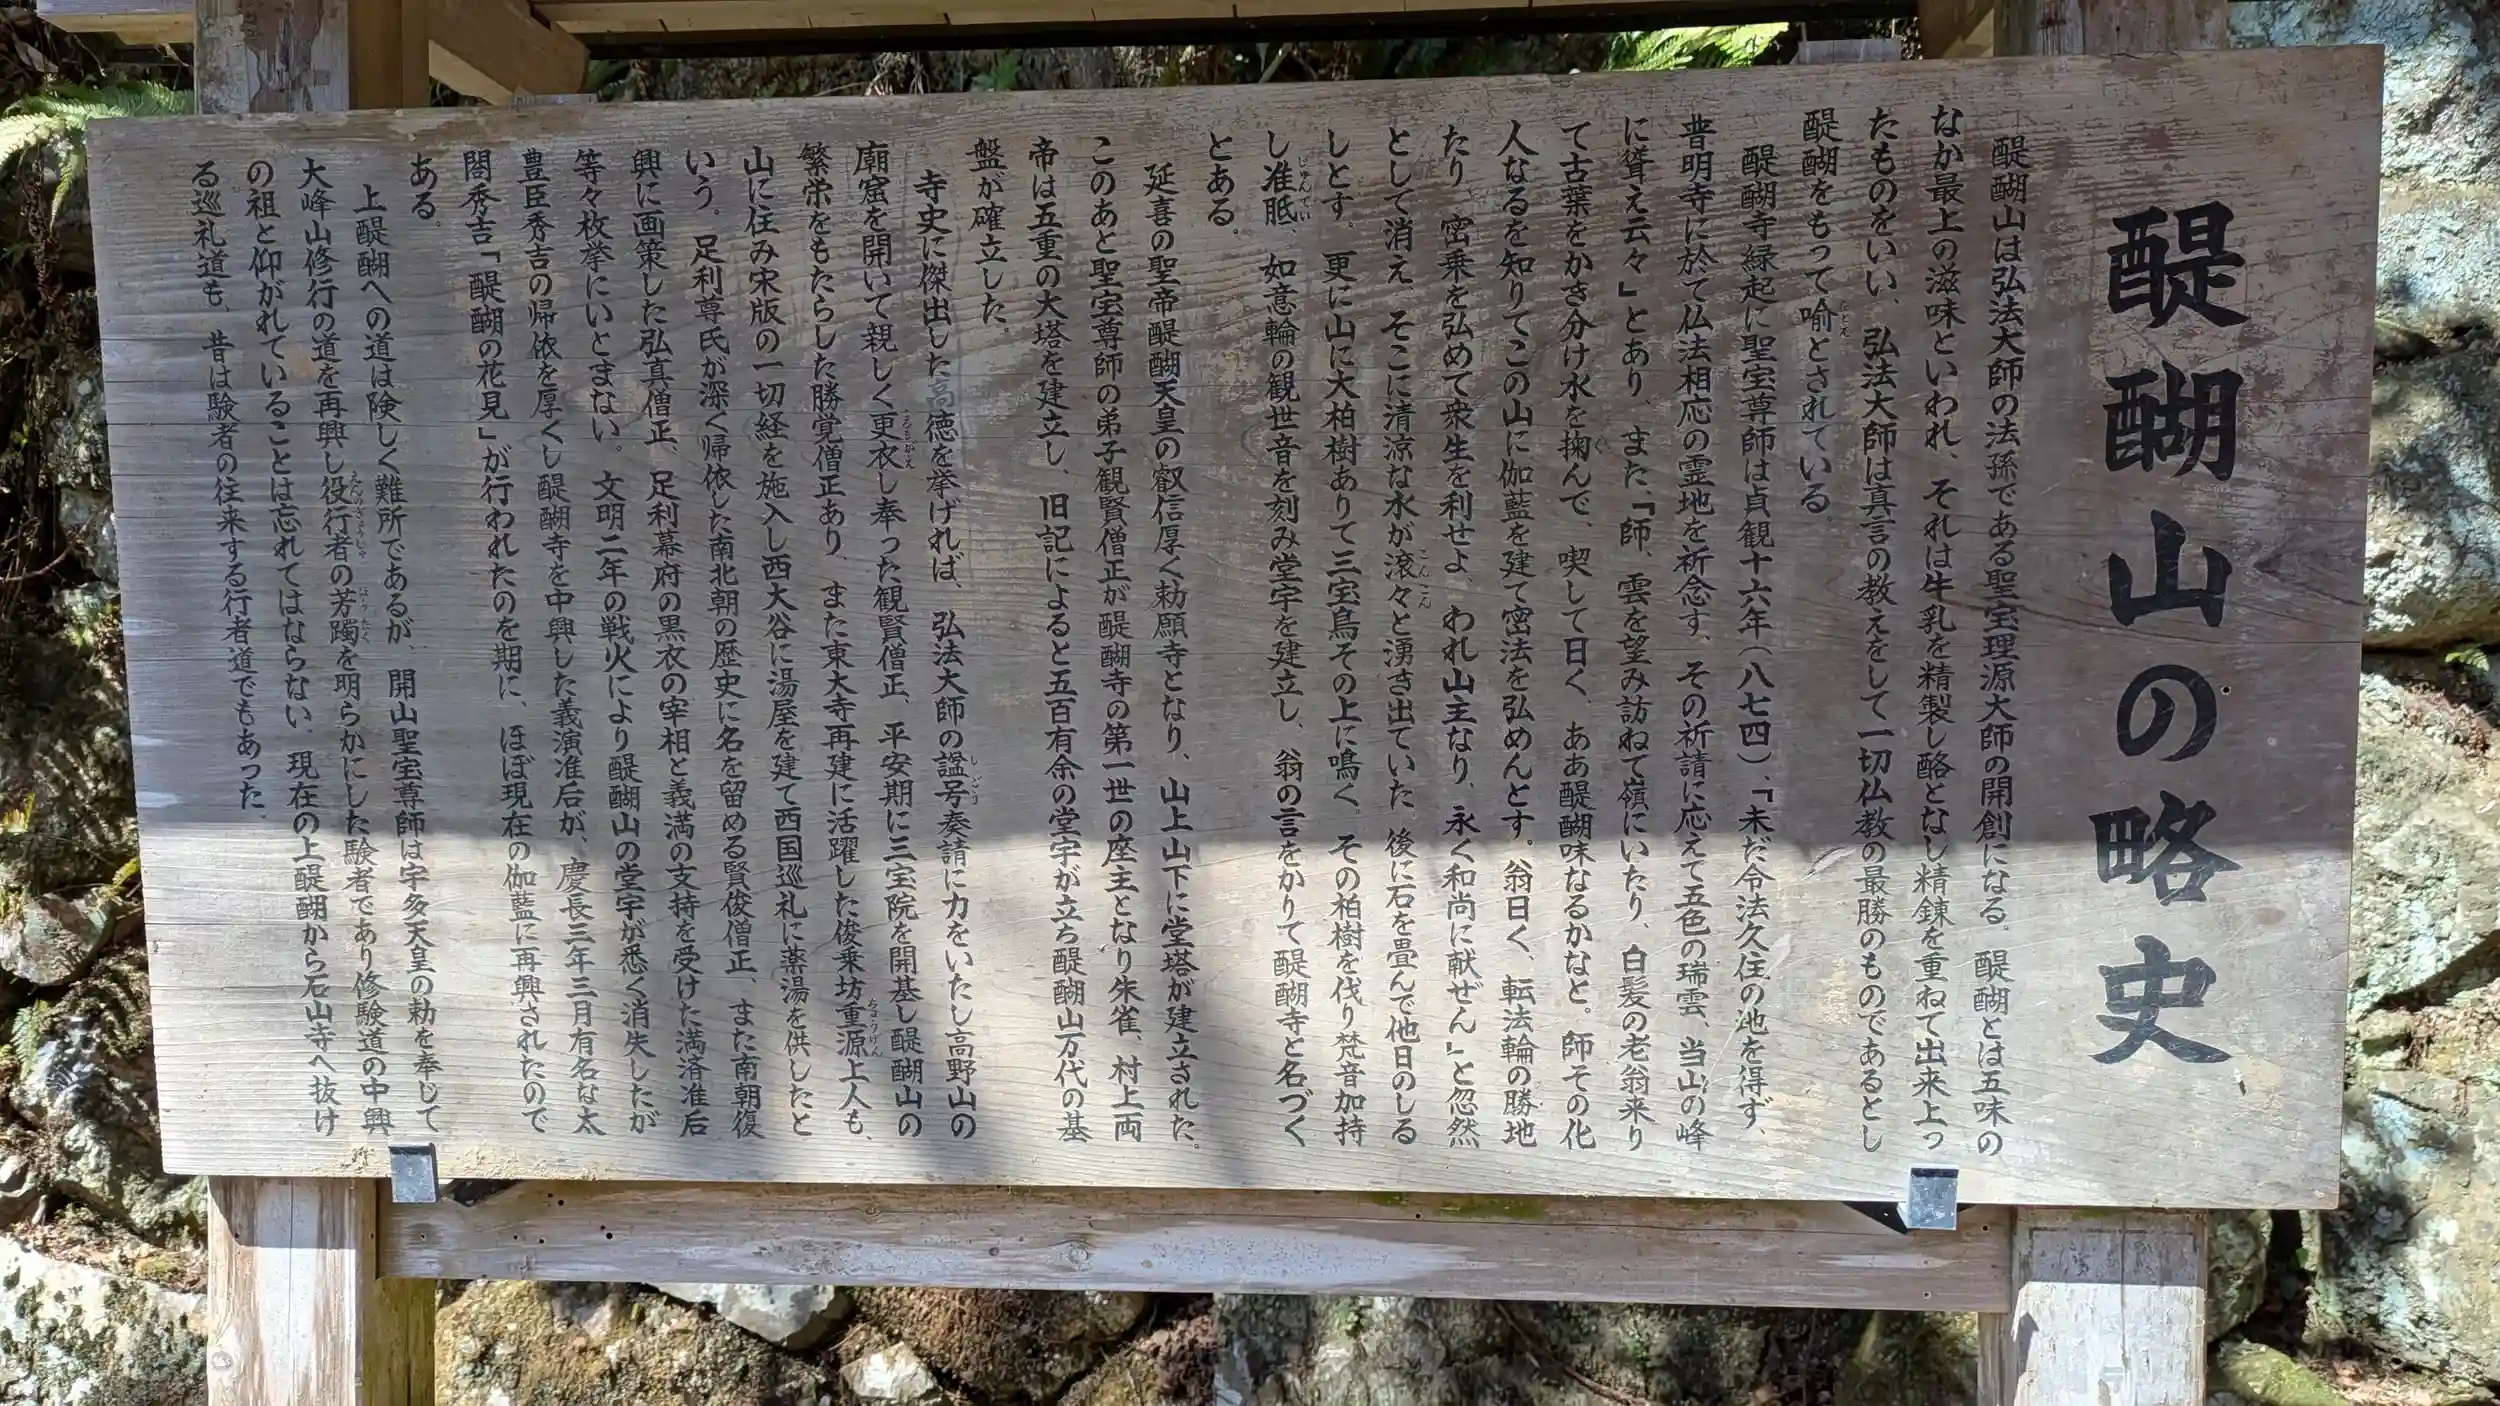 醍醐山の略史
醍醐山は弘法大師の法孫である聖宝理源大師の開創になる。醍醐とは五味の
なか最上の滋味といわれ、それは牛乳を精製し酪となし精錬を重ねて出来上っ
たものをいい、弘法大師は真言の教えをして一切仏教の最勝のものであるとし
醍醐をもって喩とされている。
醍醐寺縁起に聖宝尊師は貞観十六年(八七四)、「未だ令法久住の地を得ず、
普明寺に於て仏法相応の霊地を祈念す、その祈請に応えて五色の瑞雲、当山の峰
に聳え云々」とあり、また、「師、雲を望み訪ねて嶺にいたり、白髪の老翁来り
て古葉をかき分け水を掬んで、喫して曰く、ああ醍醐味なるかなと。師その化
人なるを知りてこの山に伽藍を建て密法を弘めんとす。翁曰く、転法輪の勝地
たり、密乗を弘めて衆生を利せよ、われ山主なり、永く和尚に献ぜん」と忽然
として消え、そこに清涼な水が滾々と湧き出ていた、後に石を畳んで他日のしる
しとす。更に山に大柏樹ありて三宝鳥その上に鳴く。その柏樹を伐り梵音加持
し准胝、如意輪の観世音を刻み堂宇を建立し、翁の言をかりて醍醐寺と名づく
とある。
延喜の聖帝醍醐天皇の叡信厚く勅願寺となり、山上山下に堂塔が建立された。
このあと聖宝尊師の弟子観賢僧正が醍醐寺の第一世の座主となり朱雀、村上両
帝は五重の大塔を建立し、旧記によると五百有余の堂宇が立ち醍醐山万代の基
盤が確立した。
寺史に傑出した高徳を挙げれば、弘法大師の諡号奏請に力をいたし高野山の
廟窟を開いて親しく更衣し奉った観賢僧正、平安期に三宝院を開基し醍醐山の
繁栄をもたらした勝覚僧正あり、また東大寺再建に活躍した俊乗坊重源上人も、
山に住み宋版の一切経を施入し西大谷に湯屋を建て西国巡礼に薬湯を供したと
いう。足利尊氏が深く帰依した南北朝の歴史に名を留める賢俊僧正、また南朝復
興に画策した弘真僧正、足利幕府の黒衣の宰相と義満の支持を受けた満済准后
等々枚挙にいとまない。文明二年の戦火により醍醐山の堂宇が悉く消失したが
豊臣秀吉の帰依を厚くし醍醐寺を中興した義演准后が、慶長三年三月有名な太
閤秀吉「醍醐の花見」が行われたのを期に、ほぼ現在の伽藍に再興されたので
ある。
上醍醐への道は険しく難所であるが、開山聖宝尊師は宇多天皇の勅を奉じて
大峰山修行の道を再興し役行者の芳躅を明らかにした験者であり修験道の中興
の祖と仰がれていることは忘れてはならない、現在の上醍醐から石山寺へ抜け
る巡礼道も、昔は験者の往来する行者道でもあった。